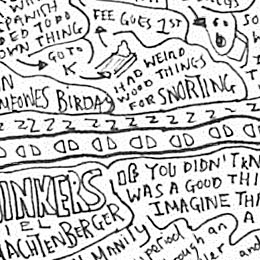 SPANISH
USED TO DO
OWN THING
FEE GOES 1ST
GOTO
K
HAD WEIRD
WOOD THINGS
FOR SNORTING
BIRDAY
Z Z Z Z Z Z Z Z Z Z Z
INKERS
IEL
ACHTENBERGER
IF YOU DIDN'T
WAS A GOOD THI
IMAGINE THA
A
MANITY
period
rough an
and